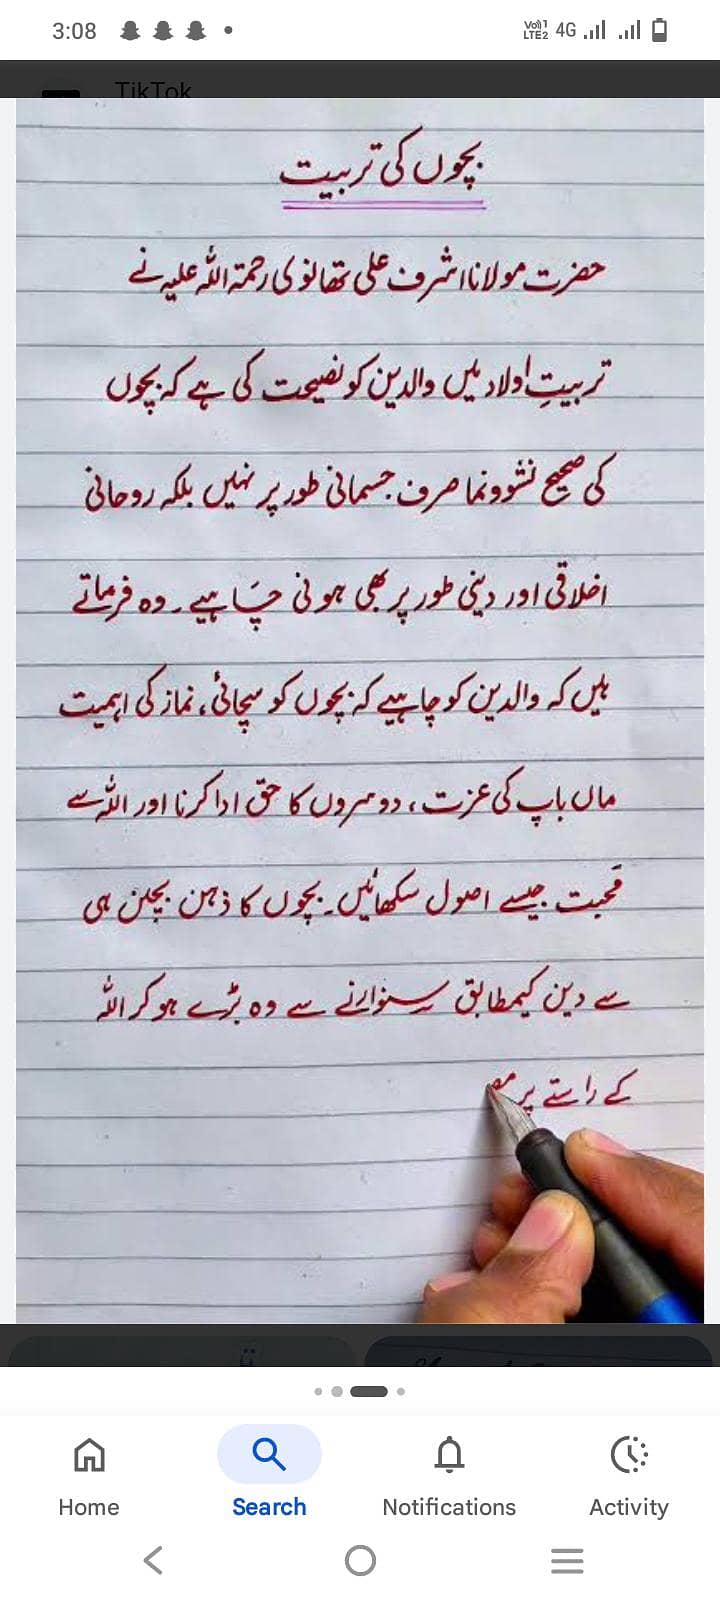 3:08
Vo)) 1
LTE2 4G
TikTok
بچوں کی تربیت
حضرت مولانا اشرف علی تھانوی رحمۃ اللہ علیہ نے
تربیتِ اولاد میں والدین کو نصیحت کی ہے کہ بچوں
کی صحیح نشوونما صرف جسمانی طور پر نہیں بلکہ روحانی
اخلاقی اور دینی طور پر بھی ہونی چَاہیے ۔ وہ فرماتے
ہیں کہ والدین کو چاہیے کہ بچوں کو سچائی، نماز کی اہمیت
ماں باپ کی عزت ، دوسروں کا حق ادا کرنا اور اللہ سے
مَحبت جیسے اصول سکھائیں۔ بچوں کا ذہن بچپن ہی
سے دین کیمطابق سنوارنے سے وہ بڑے ہو کر اللہ
کے راستے پر
Home
Search
Notifications
Activity